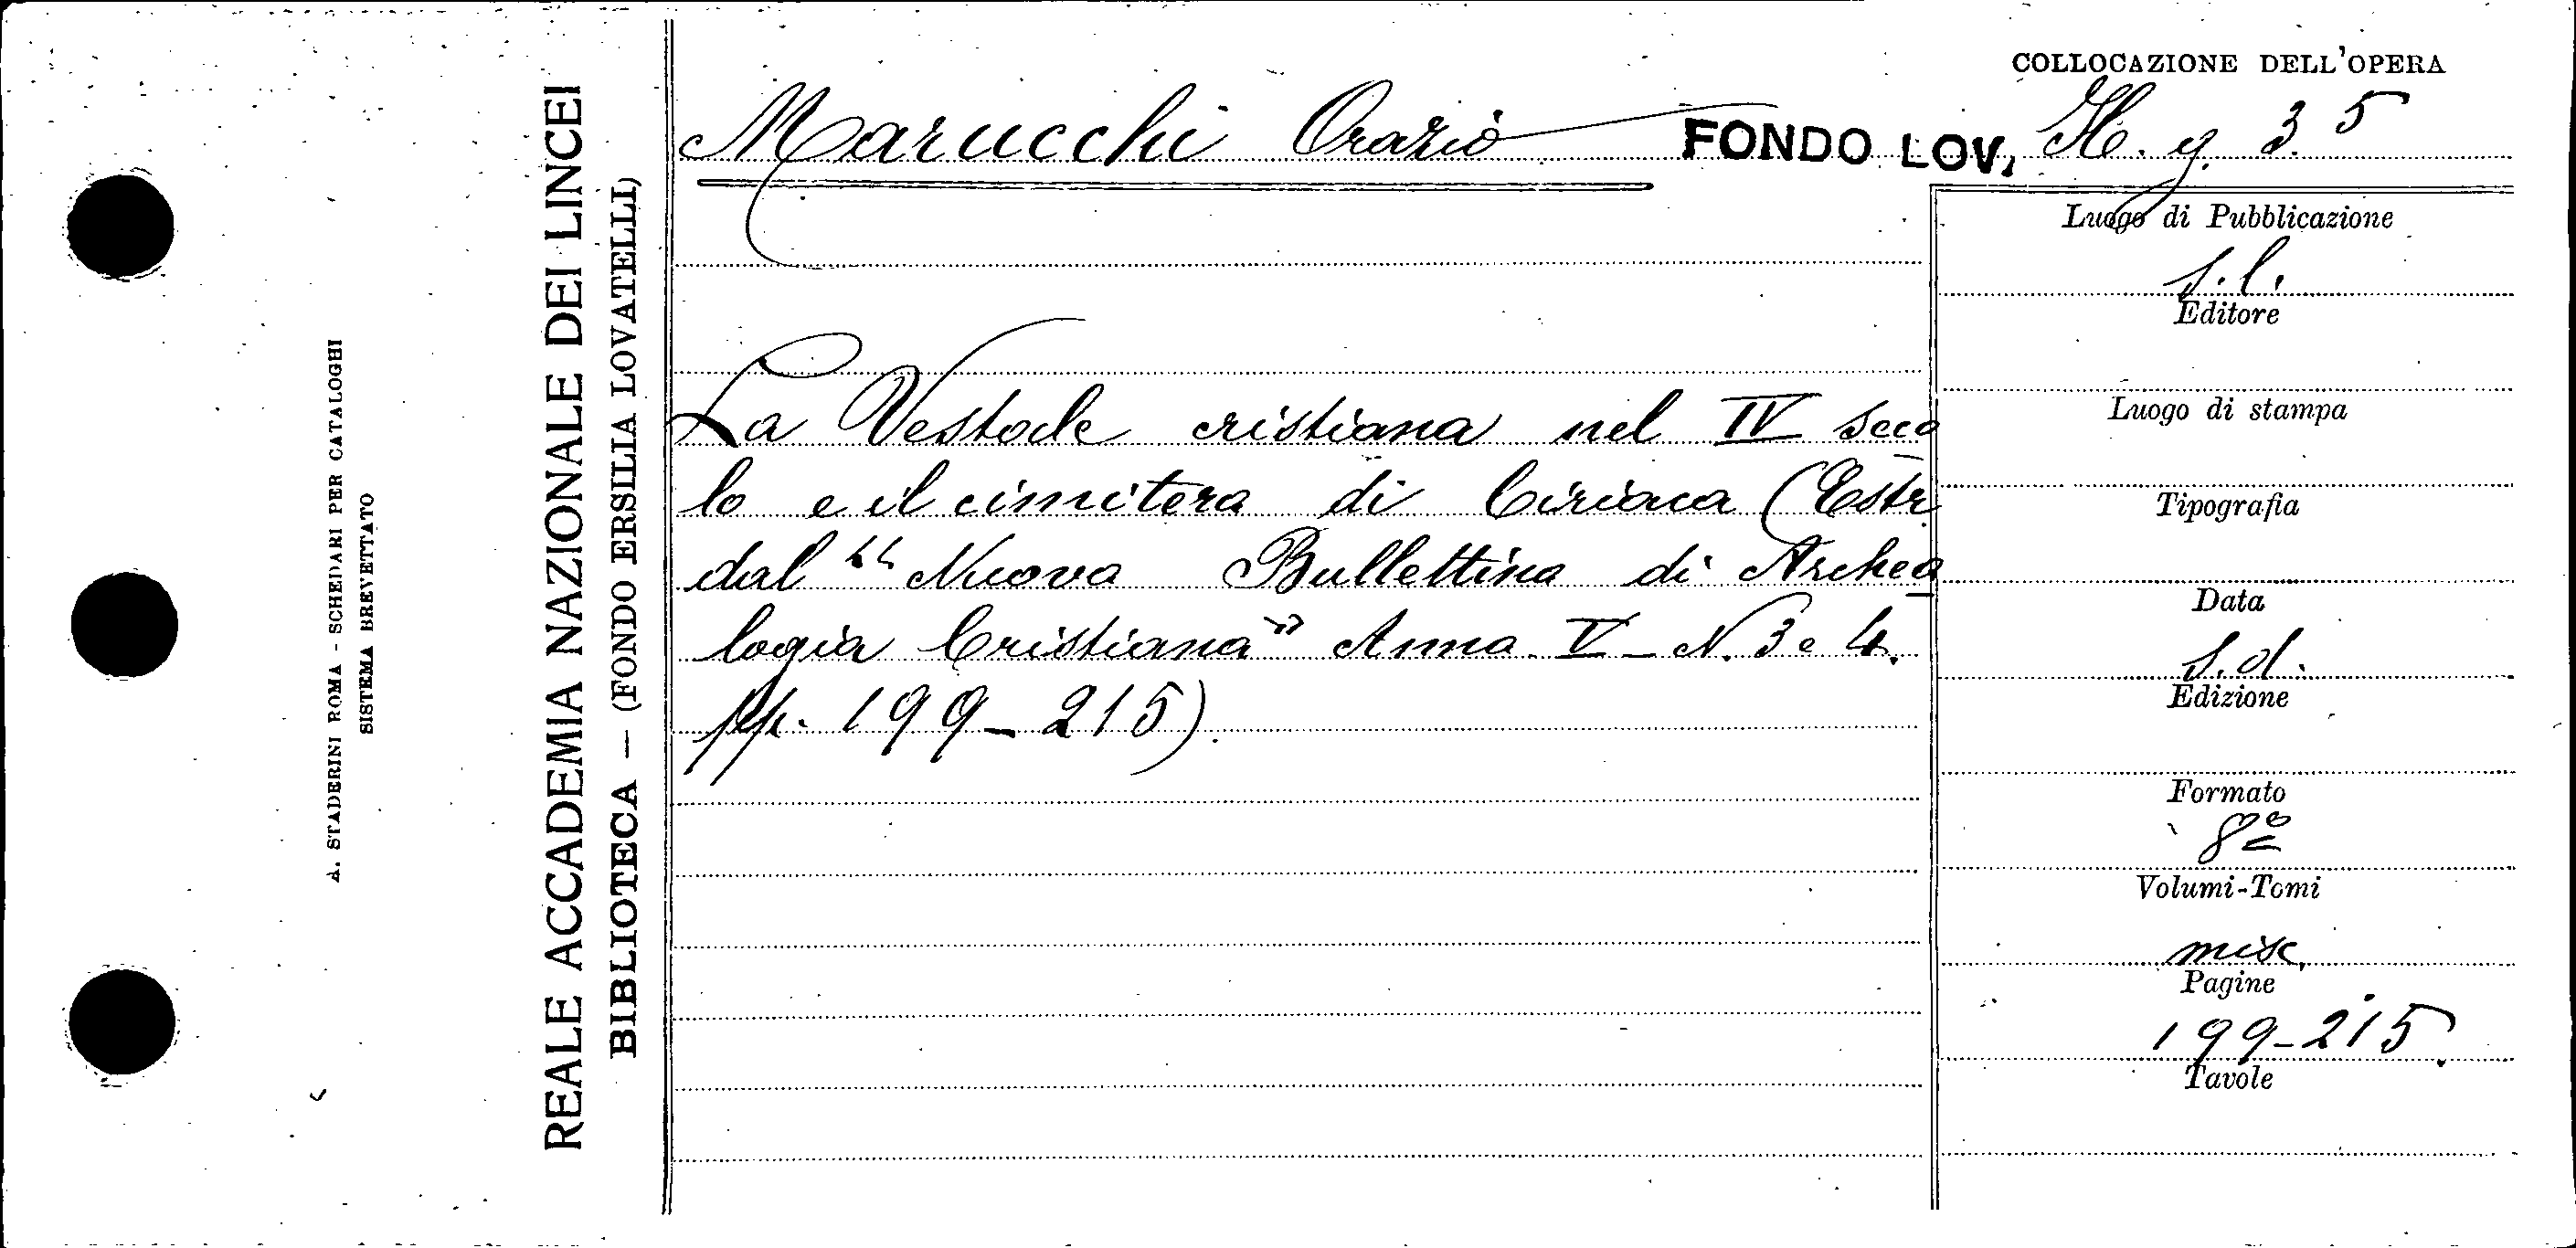 COLLOCAZIONE DELL'OPERA
Marucchi Orazio
FONDO LOV. H. g. 3. 5
La Vestale cristiana nel IV seco
lo e il cimitero di Ciriaca (Estr.
dal "Nuovo Bullettino di Archeo
logia Cristiana" Anno V - N. 3 e 4.
pp. 199-215).
Luogo di Pubblicazione
s.l.
Editore
Luogo di stampa
Tipografia
Data
s.d.
Edizione
Formato
8º
Volumi-Tomi
misc.
Pagine
199-215.
Tavole
REALE ACCADEMIA NAZIONALE DEI LINCEI
BIBLIOTECA — (FONDO ERSILIA LOVATELLI)
A. STADERINI ROMA - SCHEDARI PER CATALOGHI
SISTEMA BREVETTATO